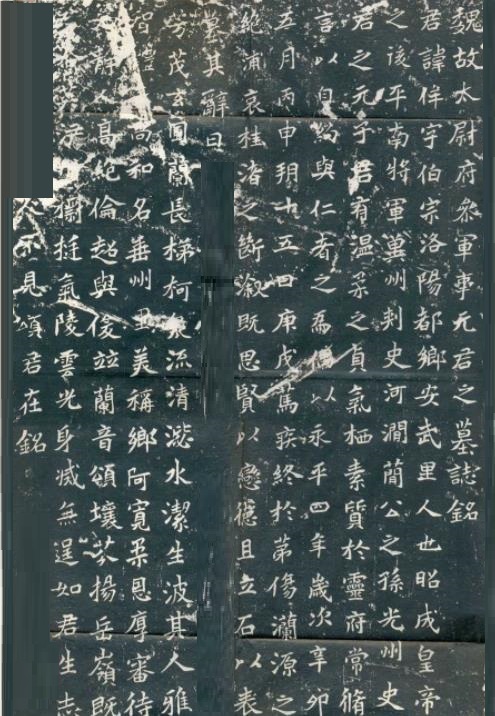 魏故太尉府參軍事元君之墓誌銘
君諱侔字伯宗洛陽都鄉安武里人也昭成皇帝
之後平南將軍冀州刺史河澗簡公之孫光州史
君之元子君有溫柔之貞氣栖素質於靈府常脩
言以自與仁者之為以永平四年歲次辛卯
五月丙申玥十五日庚戌篤疾終於第傷瀾源之
絕浦哀桂渚之斷淑既思賢以戀德且立石以表
其辭曰
芳茂玄蘭長梯柯流清瀅水潔生波其人雅
智高和名華州里美稱鄉阿寬柔恩厚審待
靜高紀倫超與俊竝蘭音頌壤芬揚岳嶺既
挺氣陵雲光身滅無遑如君生志
不見頌君在銘